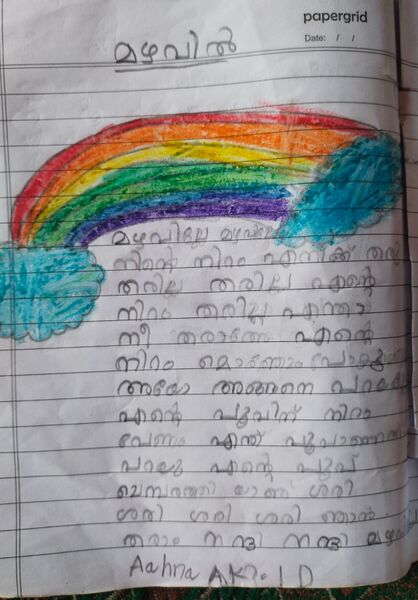 papergrid
Date: / /
മഴവിൽ
മഴവില്ലേ മഴവില്ലേ
നിന്റെ നിറം എനിക്ക് തരു
തരില്ല തരില്ല എന്റെ
നിറം തരില്ല എന്താ
നീ തരാത്തേ എന്റെ
നിറം മൊത്തം
അയോ അങ്ങനെ
എന്റെ പൂവിന് നിറം
വേണം എന്ത്
പറയു എന്റെ പൂവ്
ചെമ്പരത്തി യാണ് ശരി
ശരി ശരി ശരി ഞാൻ
തരാം നന്ദി നന്ദി
Aahna AK 1 D